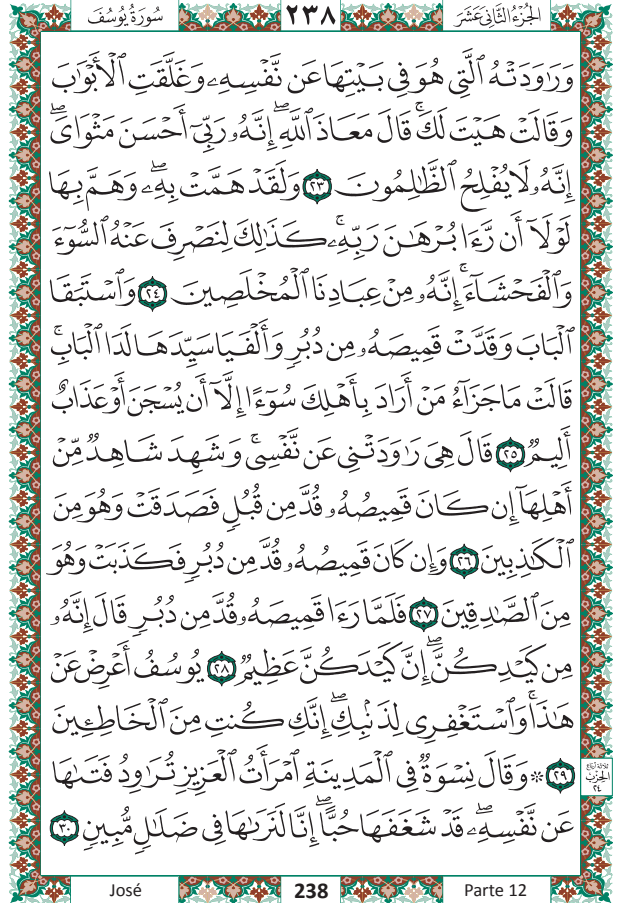 الجُزْءُ الثَّانِي عَشَرَ ٢٣٨ سُورَةُ يُوسُفَ
وَرَٰوَدَتْهُ ٱلَّتِى هُوَ فِى بَيْتِهَا عَن نَّفْسِهِۦ وَغَلَّقَتِ ٱلْأَبْوَٰبَ
وَقَالَتْ هَيْتَ لَكَ ۚ قَالَ مَعَاذَ ٱللَّهِ ۖ إِنَّهُۥ رَبِّىٓ أَحْسَنَ مَثْوَاىَ ۖ
إِنَّهُۥ لَا يُفْلِحُ ٱلظَّٰلِمُونَ ٢٣ وَلَقَدْ هَمَّتْ بِهِۦ ۖ وَهَمَّ بِهَا
لَوْلَآ أَن رَّءَا بُرْهَٰنَ رَبِّهِۦ ۚ كَذَٰلِكَ لِنَصْرِفَ عَنْهُ ٱلسُّوٓءَ
وَٱلْفَحْشَآءَ ۚ إِنَّهُۥ مِنْ عِبَادِنَا ٱلْمُخْلَصِينَ ٢٤ وَٱسْتَبَقَا
ٱلْبَابَ وَقَدَّتْ قَمِيصَهُۥ مِن دُبُرٍ وَأَلْفَيَا سَيِّدَهَا لَدَا ٱلْبَابِ ۚ
قَالَتْ مَا جَزَآءُ مَنْ أَرَادَ بِأَهْلِكَ سُوٓءًا إِلَّآ أَن يُسْجَنَ أَوْ عَذَابٌ
أَلِيمٌ ٢٥ قَالَ هِىَ رَٰوَدَتْنِى عَن نَّفْسِى ۚ وَشَهِدَ شَاهِدٌ مِّنْ
أَهْلِهَآ إِن كَانَ قَمِيصُهُۥ قُدَّ مِن قُبُلٍ فَصَدَقَتْ وَهُوَ مِنَ
ٱلْكَٰذِبِينَ ٢٦ وَإِن كَانَ قَمِيصُهُۥ قُدَّ مِن دُبُرٍ فَكَذَبَتْ وَهُوَ
مِنَ ٱلصَّٰدِقِينَ ٢٧ فَلَمَّا رَءَا قَمِيصَهُۥ قُدَّ مِن دُبُرٍ قَالَ إِنَّهُۥ
مِن كَيْدِكُنَّ ۖ إِنَّ كَيْدَكُنَّ عَظِيمٌ ٢٨ يُوسُفُ أَعْرِضْ عَنْ
هَٰذَا ۚ وَٱسْتَغْفِرِى لِذَنۢبِكِ ۖ إِنَّكِ كُنتِ مِنَ ٱلْخَاطِـِٔينَ
٢٩ ۞ وَقَالَ نِسْوَةٌ فِى ٱلْمَدِينَةِ ٱمْرَأَتُ ٱلْعَزِيزِ تُرَٰوِدُ فَتَىٰهَا
عَن نَّفْسِهِۦ ۖ قَدْ شَغَفَهَا حُبًّا ۖ إِنَّا لَنَرَىٰهَا فِى ضَلَٰلٍ مُّبِينٍ ٣٠
ثلاثة أرباع
الحزب
٢٤
José 238 Parte 12